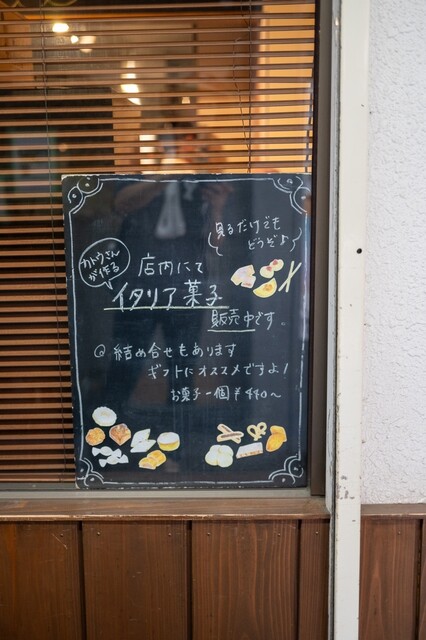 見るだけでも
どうぞよ
カトウさん
が作る
店内にて
イタリア菓子
販売中です。
◎ 結め合せもあります
ギフトにオススメですよ!
お菓子一個 ¥440〜